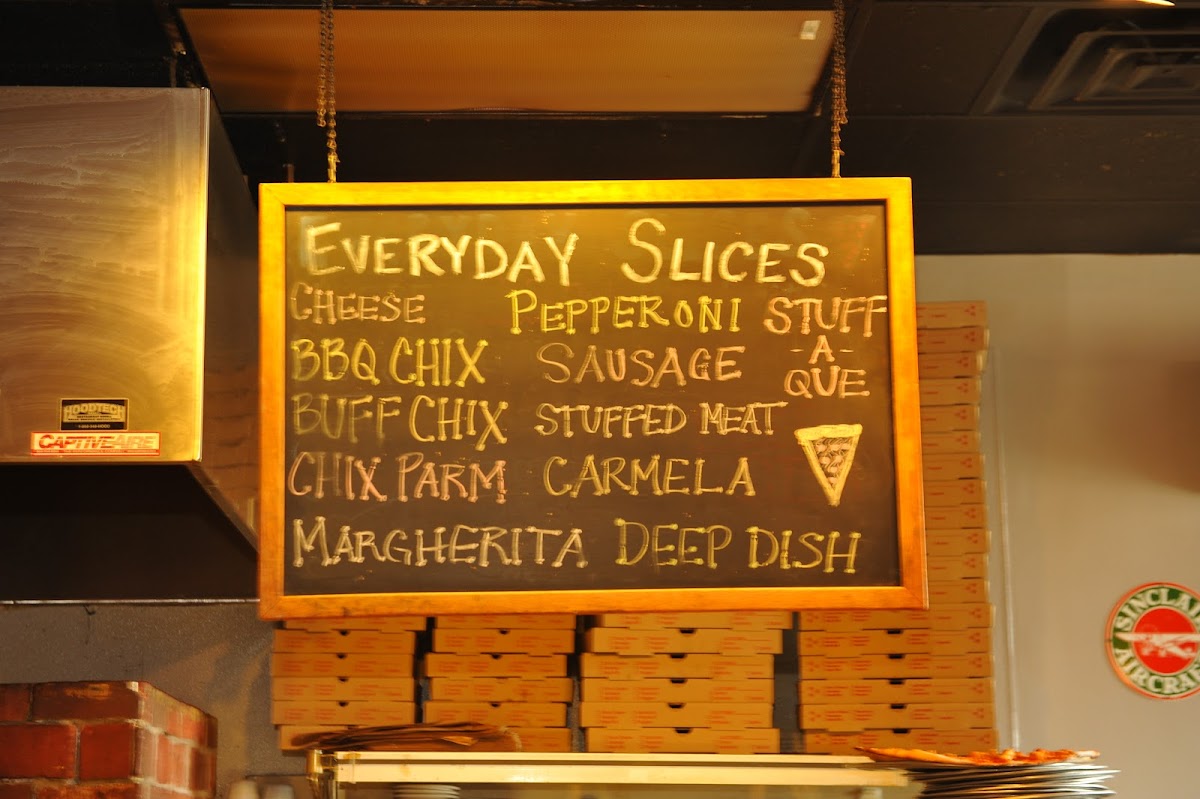 EVERYDAY SLICES
CHEESE PEPPERONI STUFF
-A-
QUE
BBQ CHIX SAUSAGE
BUFF CHIX STUFFED MEAT
CHIX PARM CARMELA
MARGHERITA DEEP DISH
HOODTECH
CAPTIVEAIRE
SINCLAIR
AIRCRA